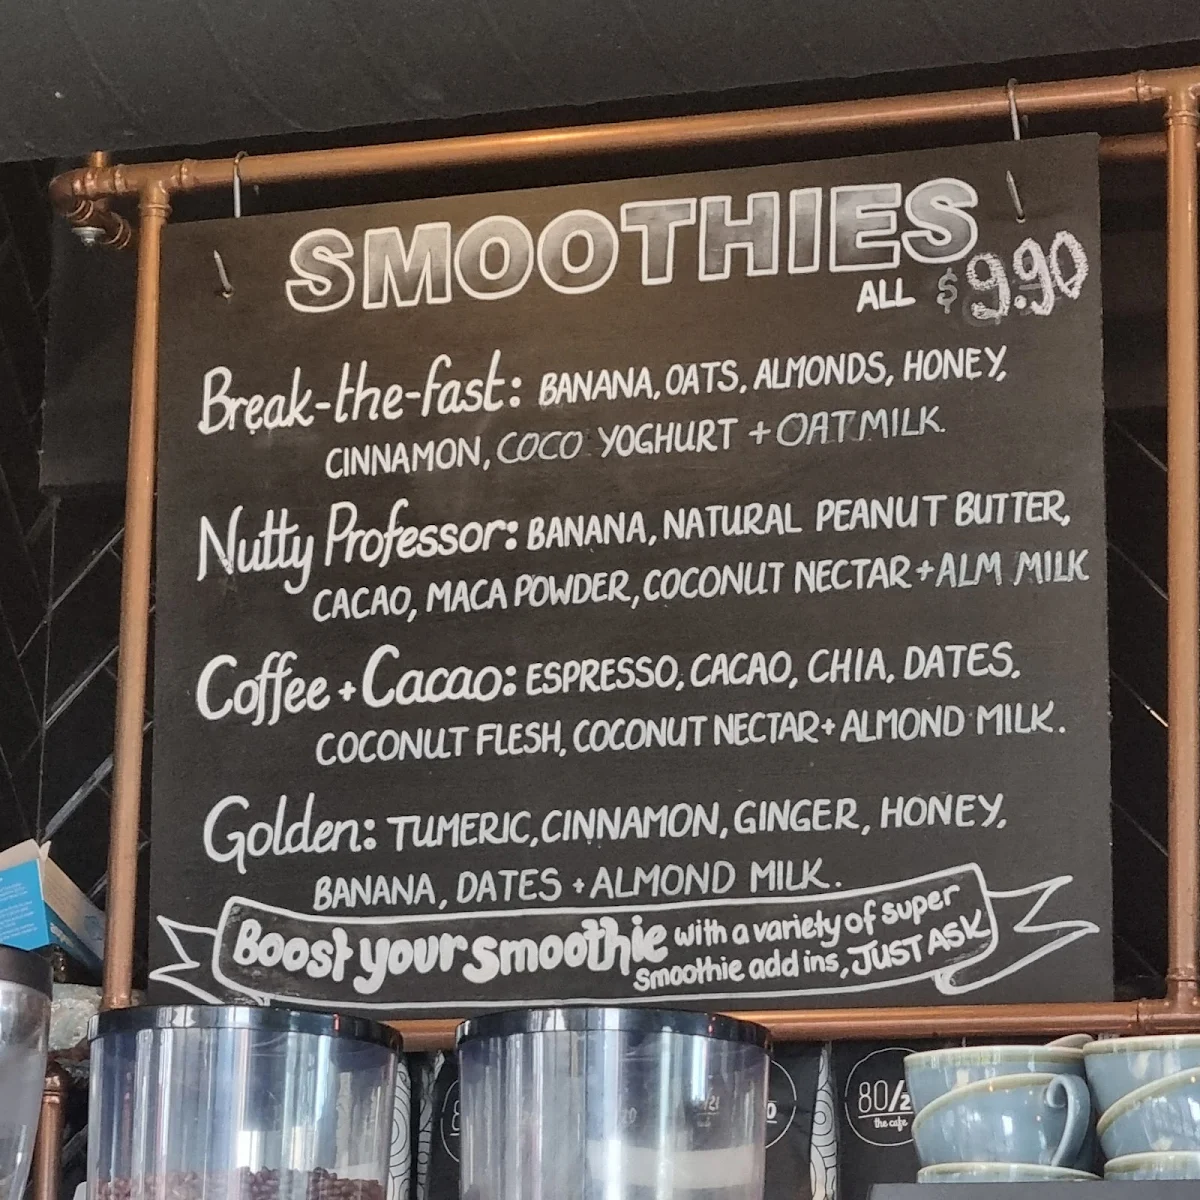 SMOOTHIES
ALL $9.90
Break-the-fast: BANANA, OATS, ALMONDS, HONEY,
CINNAMON, COCO YOGHURT + OATMILK.
Nutty Professor: BANANA, NATURAL PEANUT BUTTER,
CACAO, MACA POWDER, COCONUT NECTAR + ALM MILK
Coffee + Cacao: ESPRESSO, CACAO, CHIA, DATES,
COCONUT FLESH, COCONUT NECTAR + ALMOND MILK.
Golden: TUMERIC, CINNAMON, GINGER, HONEY,
BANANA, DATES + ALMOND MILK.
Boost your smoothie with a variety of super
smoothie add ins, JUST ASK
80/2
the cafe